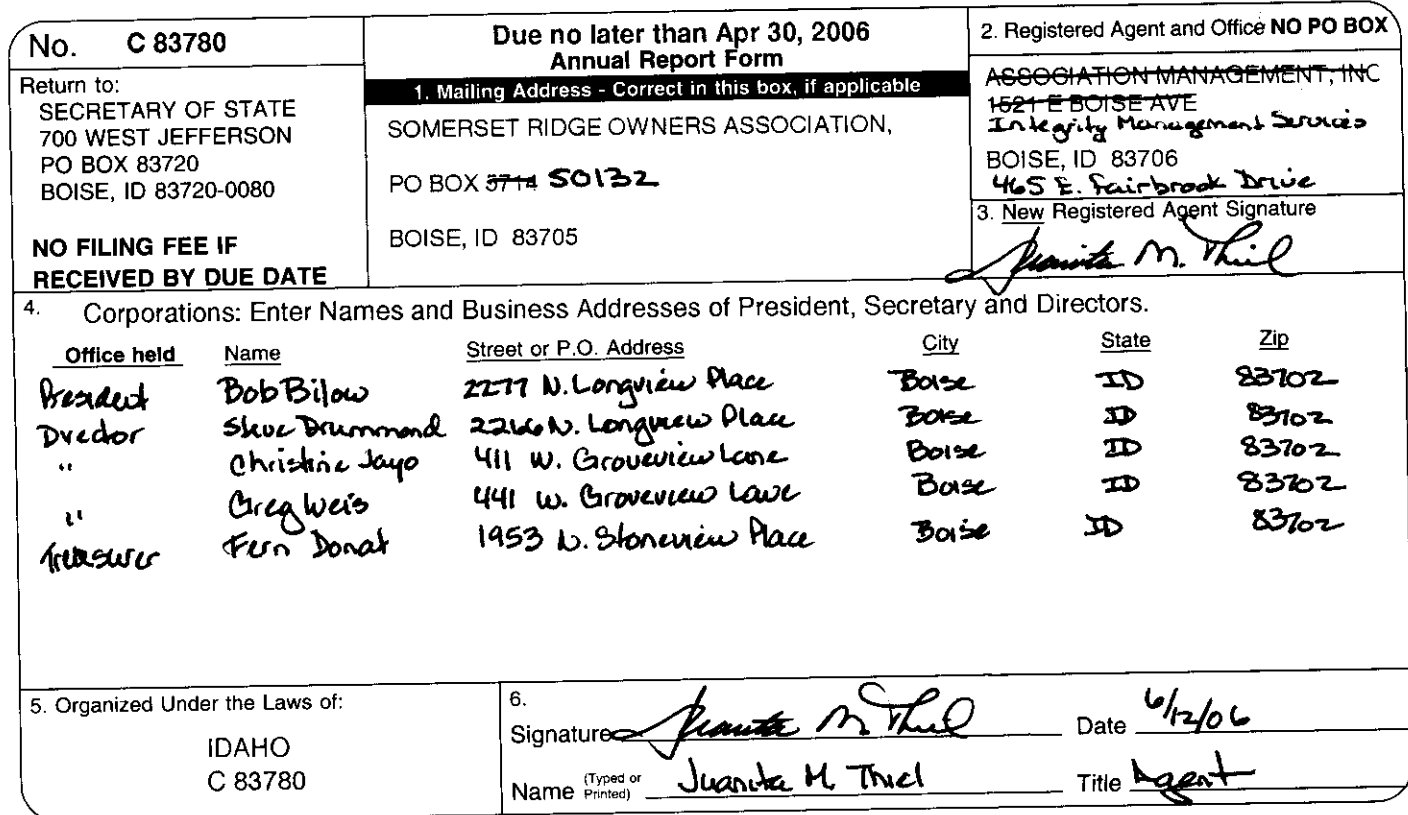 No. C 83780
Return to:
SECRETARY OF STATE
700 WEST JEFFERSON
PO BOX 83720
BOISE, ID 83720-0080
NO FILING FEE IF
RECEIVED BY DUE DATE
Due no later than Apr 30, 2006
Annual Report Form
1. Mailing Address - Correct in this box, if applicable
SOMERSET RIDGE OWNERS ASSOCIATION,
PO BOX 3714 50132
BOISE, ID 83705
2. Registered Agent and Office NO PO BOX
ASSOCIATION MANAGEMENT, INC
1521 E BOISE AVE
Integrity Management Services
BOISE, ID 83706
465 E. Fairbrook Drive
3. New Registered Agent Signature
Juanita M. Thiel
4. Corporations: Enter Names and Business Addresses of President, Secretary and Directors.
Office held Name Street or P.O. Address City State Zip
President Bob Bilow 2277 N. Longview Place Boise ID 83702
Director Steve Drummond 2266 N. Longview Place Boise ID 83702
" Christine Jayo 411 W. Groveview Lane Boise ID 83702
" Greg Weis 441 W. Groveview Lane Boise ID 83702
Treasurer Fern Donat 1953 N. Stoneview Place Boise ID 83702
5. Organized Under the Laws of:
IDAHO
C 83780
6.
Signature Juanita M. Thiel Date 6/12/06
Name (Typed or Printed) Juanita M. Thiel Title Agent